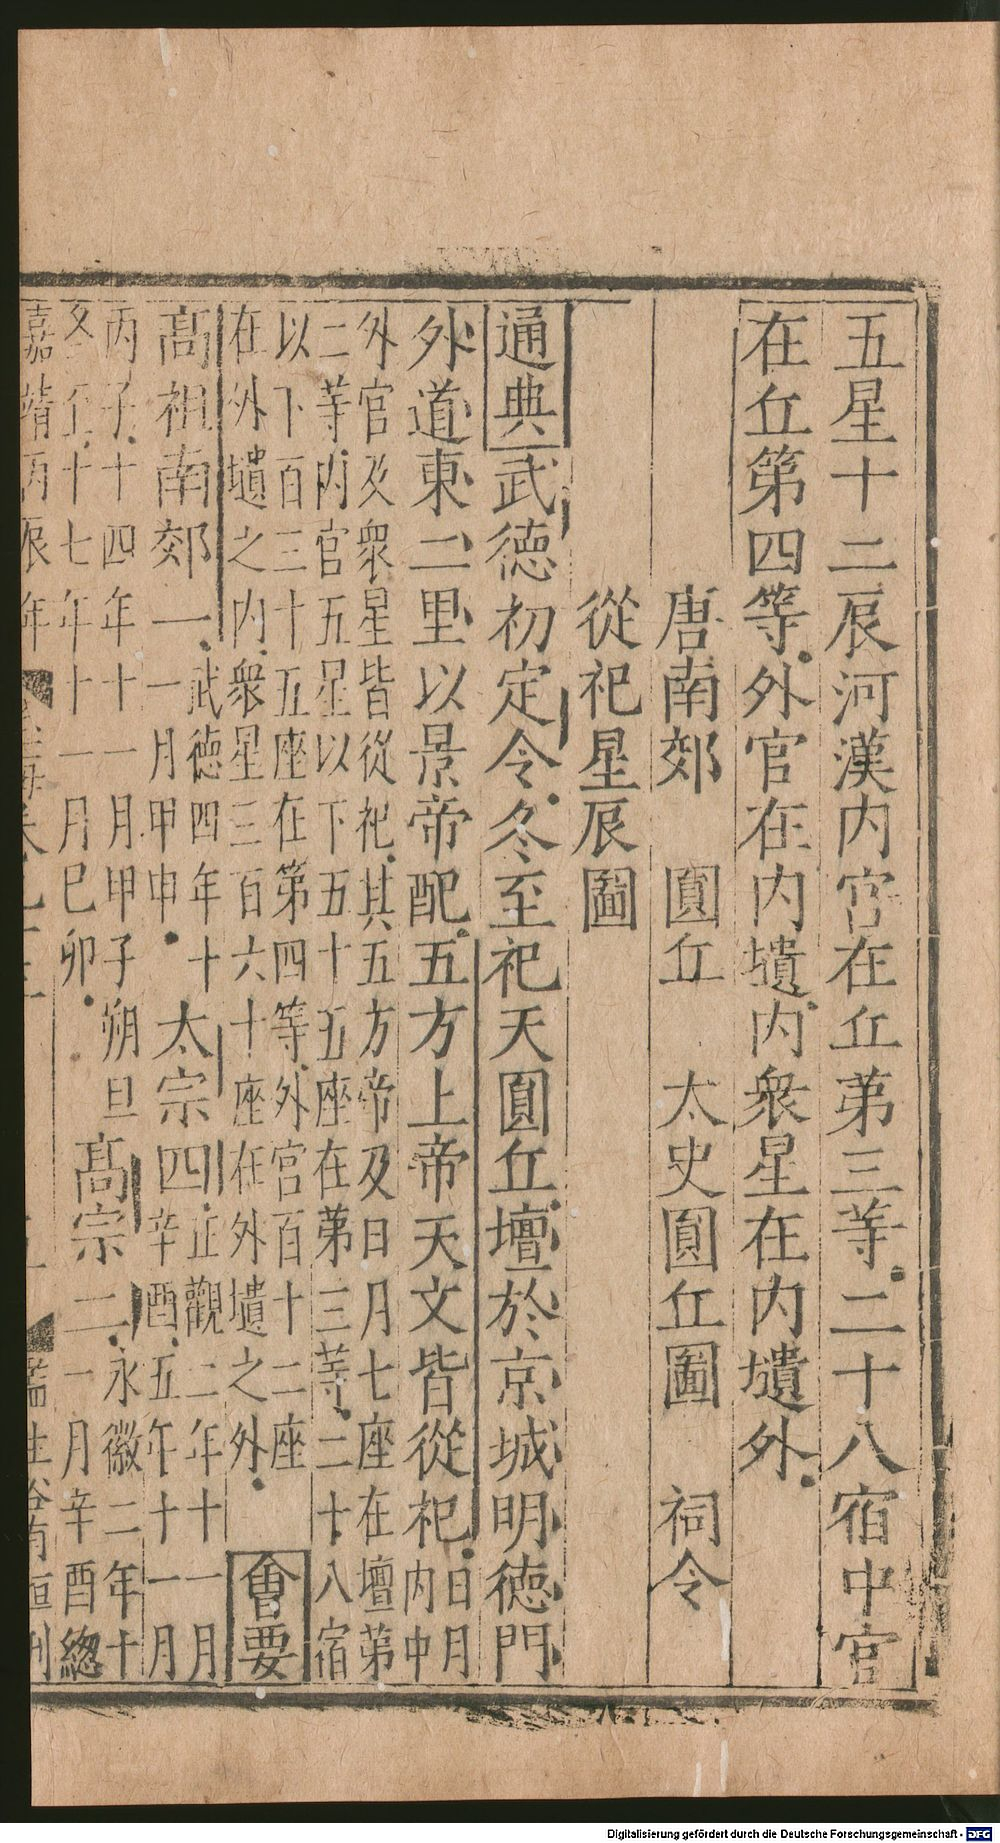 五星十二辰河漢内官在丘第三等二十八宿中官
在丘第四等外官在内壝内衆星在内壝外
唐南郊 圓丘 太史圓丘圖 祠令
從祀星辰圖
通典武德初定令冬至祀天圓丘壇於京城明德門
外道東二里以景帝配五方上帝天文皆從祀日月
内中
外官及衆星皆從祀其五方帝及日月七座在壇第
二等内官五星以下五十五座在第三等二十八宿
以下百三十五座在第四等外官百十二座
在外壝之内衆星三百六十座在外壝之外
會要
高祖南郊一武德四年十
一月甲申
太宗四正觀二年十一月
辛酉五年十一月
丙子十四年十一月甲子朔旦
十七年十一月己卯
高宗二永徽二年十
一月辛酉總
嘉靖丙辰年
監生
Digitalisierung gefördert durch die Deutsche Forschungsgemeinschaft - DFG